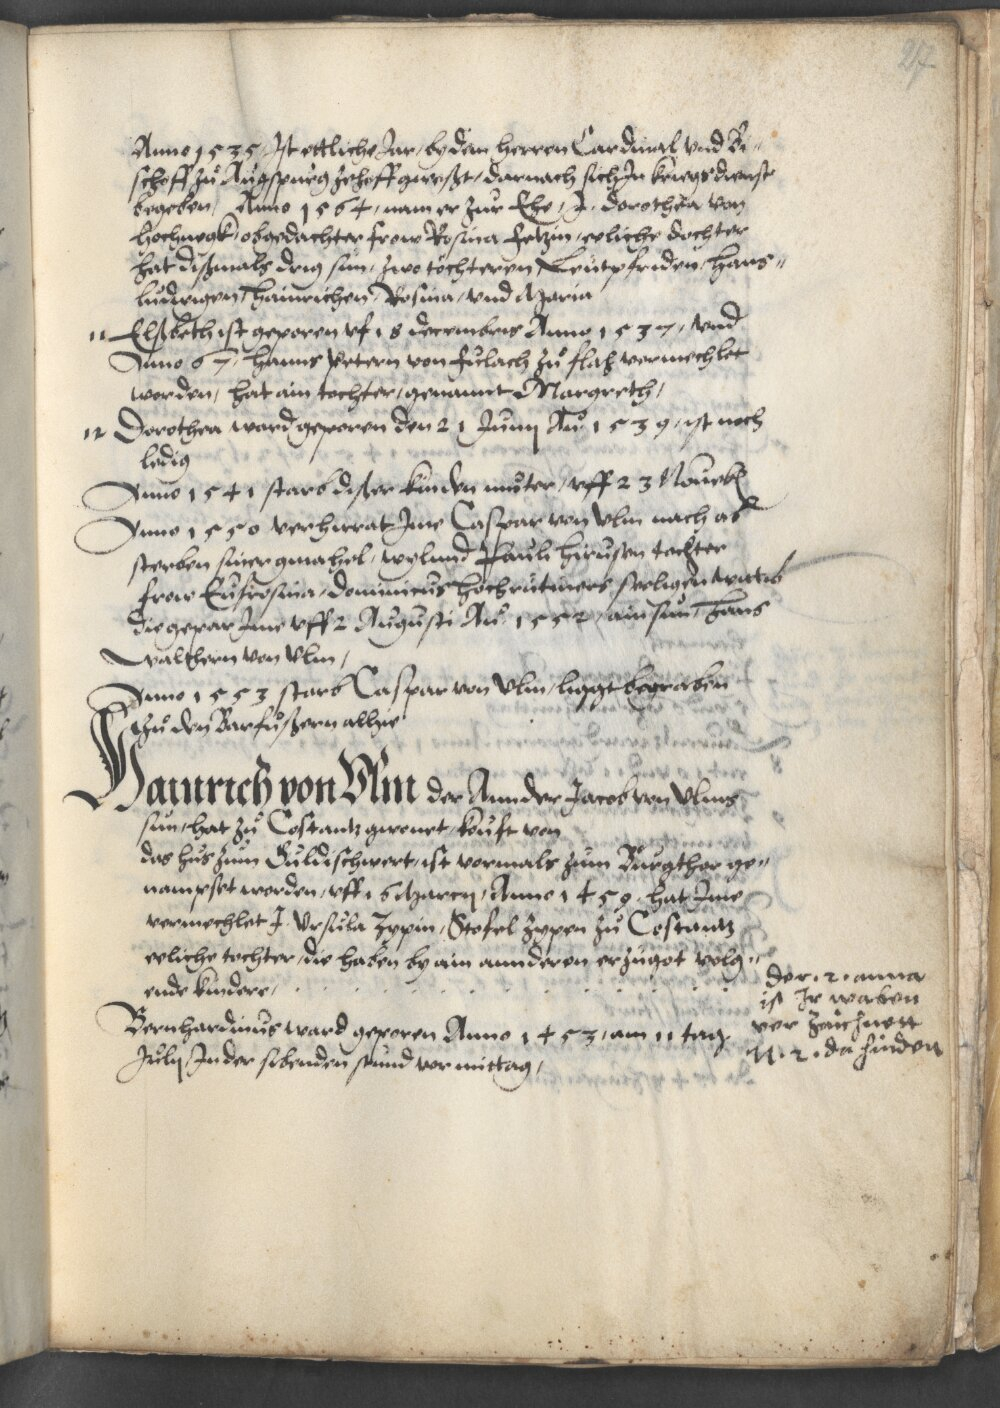 217
Anno 1535, Ist ettliche Jar, by dem herren Cardinal vnd Bi-
schoff zu Augspurg zehoff gweßt, darnach sich In kriegsdienst
begeben, Anno 1564, nam er zur Ehe, J. Dorothea von
hochnegk, obgedachter frow Rosina eeliche dochter
hat dißmals dryg sün, zwo töchteren, Leutpfriden, Hans-
ludwigen, Hainrichen, Rosina, vnd Maria
11 Elßbeth ist geporen vf 18 decembris Anno 1537, vnd
Anno 67, hanns Petern von fulach zu flach vermechlet
worden, hat ain tochter, genannt Margreth,
12 Dorothea ward geporen den 21 Junij Aõ 1539, ist noch
ledig
Anno 1541 starb dißer kinden muter, vff 23 Nouebr
Anno 1550 verhirat Jme Caspar von Vlm nach ab
sterben siner gmahel, wylund Pauli hirußen tochter
frow Eufrosina, Dominicus hochrütiners seeligen witib
die gepar Jme vff 2 Augusti Aõ 1552, ain sun, Hans
Walthern von Vlm,
Anno 1553 starb Caspar von Vlm, liggt begraben
zu den Barfußern alhie
Hainrich von Vlm der Annder Jacob von Vlms
sun, hat zu Costantz gwonet, kouft von
das hus zum Guldischwert, ist vormals zum Burgthor ge-
nampset worden, vff 16 Marcij, Anno 1450, hat Jme
vermechlet J. Vrsula Zypin, Stofel Zypen zu Costantz
eeliche tochter, die haben by ain annderen erzügot volg-
ende kindere,
Bernhardinus ward geporen Anno 1453, am 11 tag
Julij, In der sibenden stund vor mittag,
der .2. anna
ist Ir wapen
ver zaichnett
N. 2. da finden